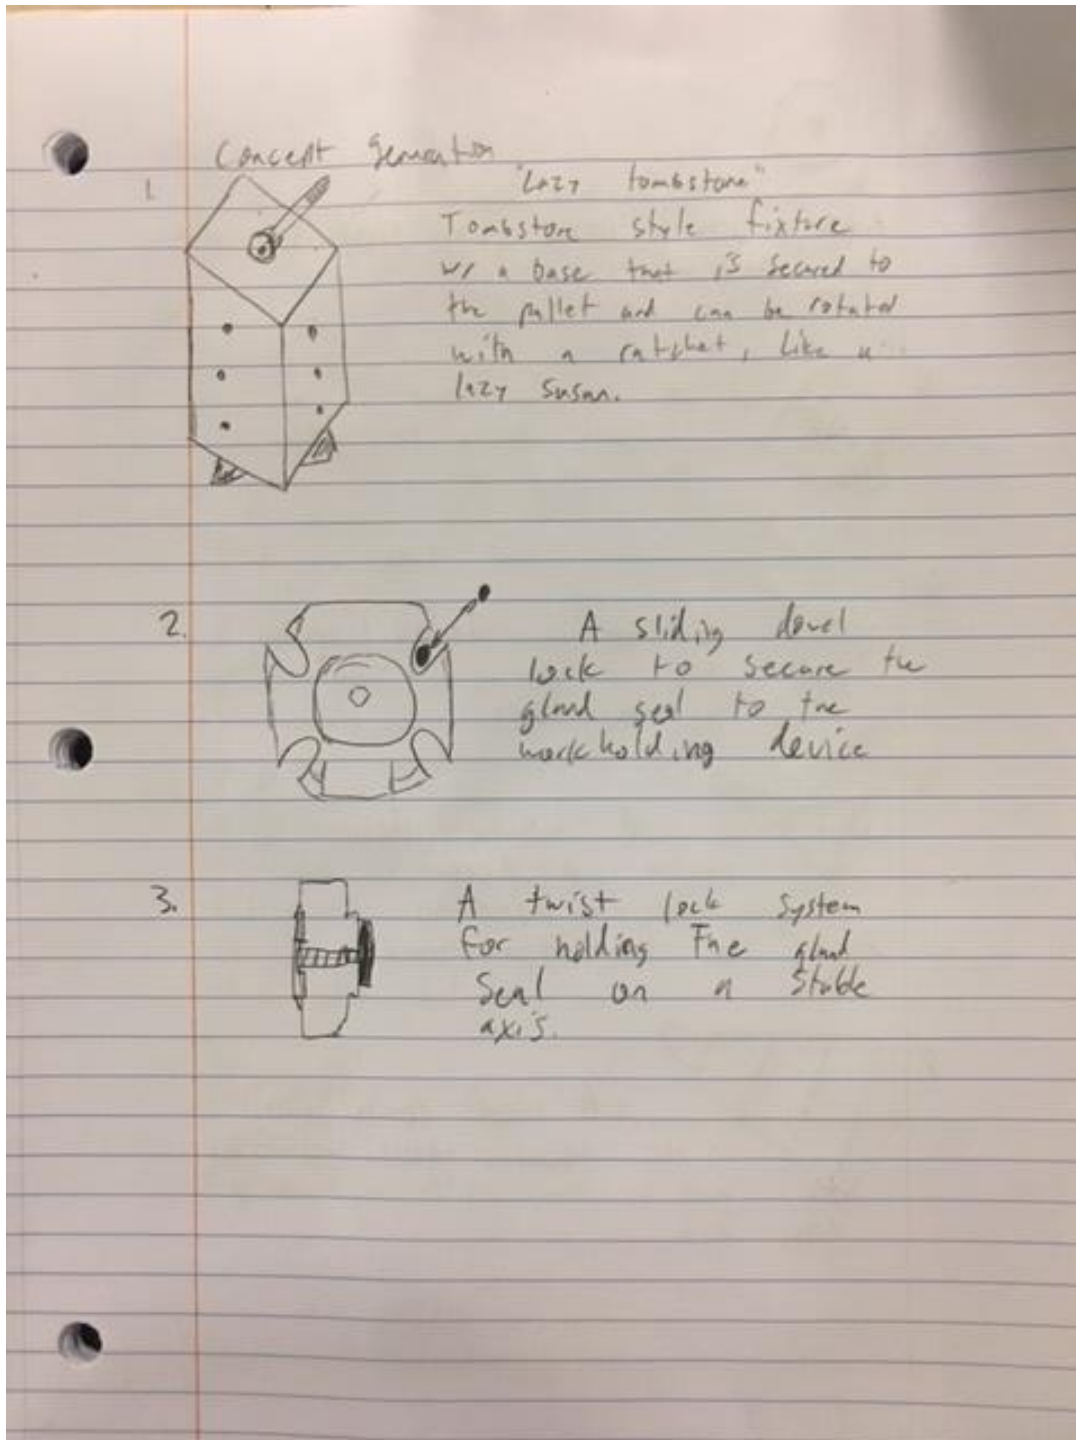 Concept Generation
1. "Lazy tombstone"
Tombstone style fixture
w/ a base that is secured to
the pallet and can be rotated
with a ratchet, like a
lazy susan.
2. A sliding dowel
lock to secure the
gland seal to the
workholding device
3. A twist lock system
for holding the gland
seal on a stable
axis.